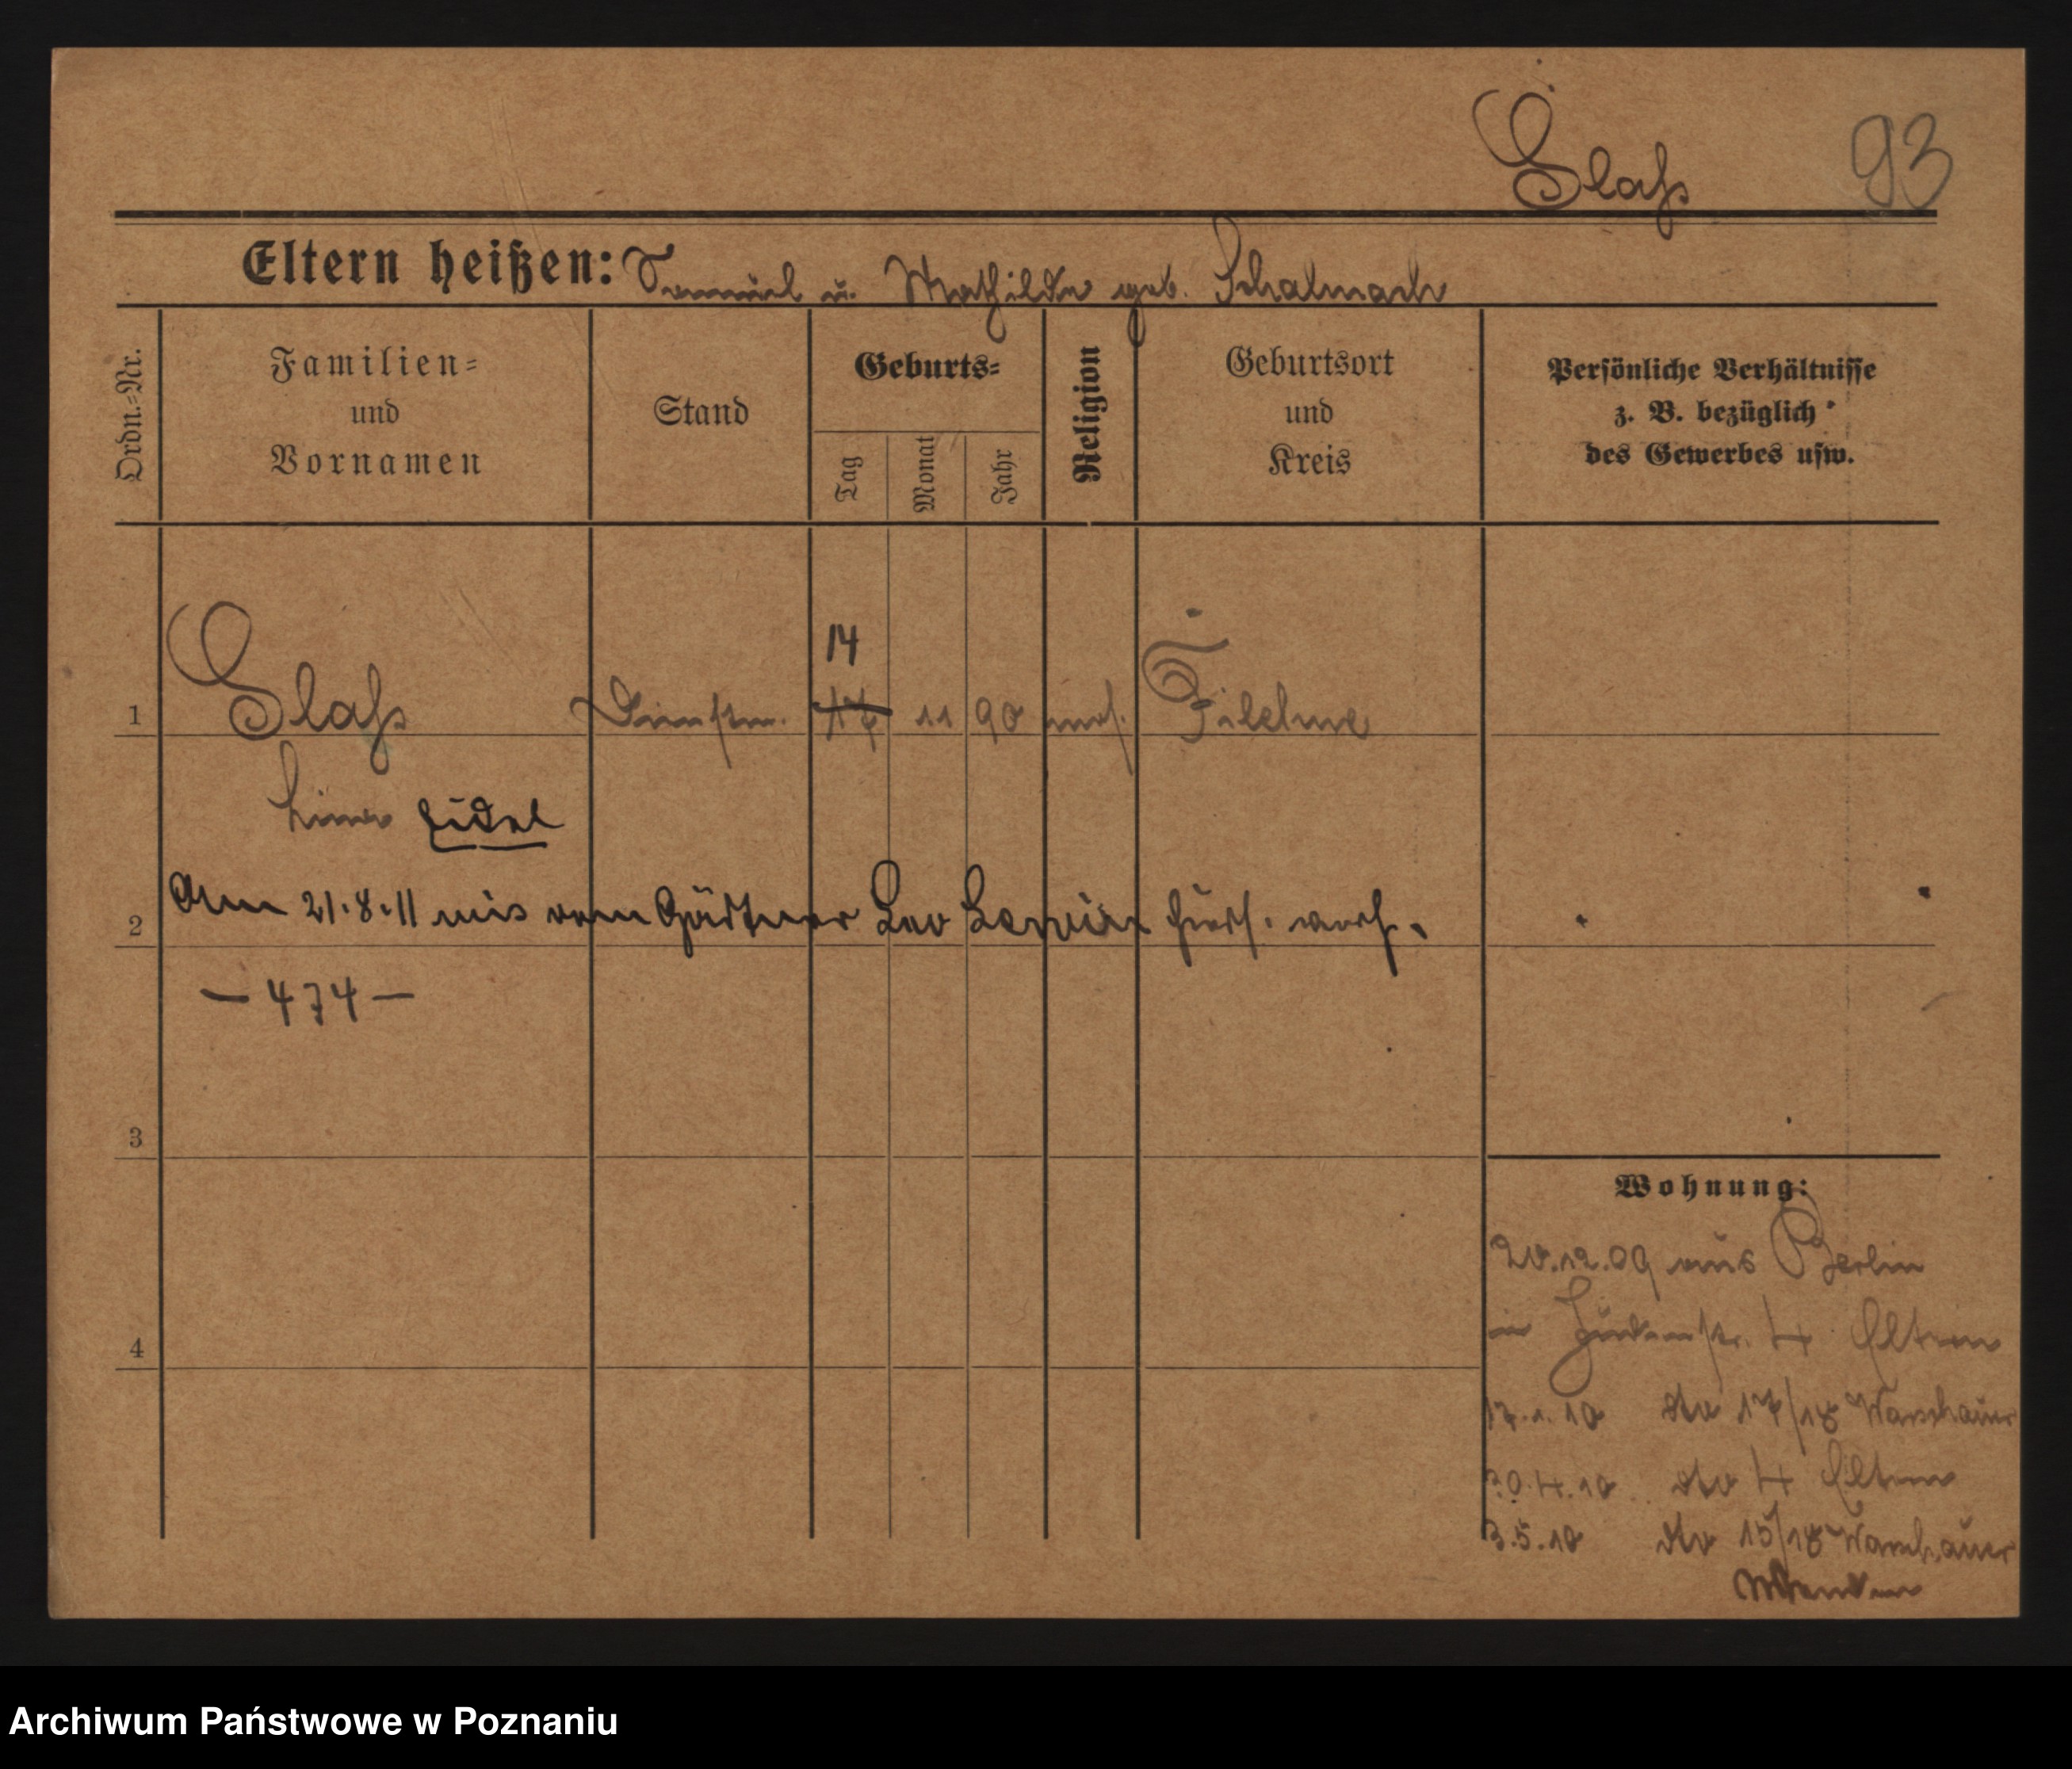 Glaß 93
Eltern heißen: Samuel u. Mathilde geb. Schalmach
Ordn.=Nr.
Familien=
und
Vornamen
Stand
Geburts=
Tag
Monat
Jahr
Religion
Geburtsort
und
Kreis
Persönliche Verhältnisse
z. B. bezüglich
des Gewerbes usw.
14
1 Glaß Dienstm. 17 11 90 mos. Filehne
Eidel
2 Am 21.8.11 mis vom Gärtner Leo Lewin
— 474 —
3
Wohnung:
20.12.09 aus Berlin
in Judenstr. 4 Eltern
4
17.1.10 dto 17/18 Warschauer
30.4.10 dto 4 Eltern
3.5.10 dto 15/18 Warschauer
Archiwum Państwowe w Poznaniu